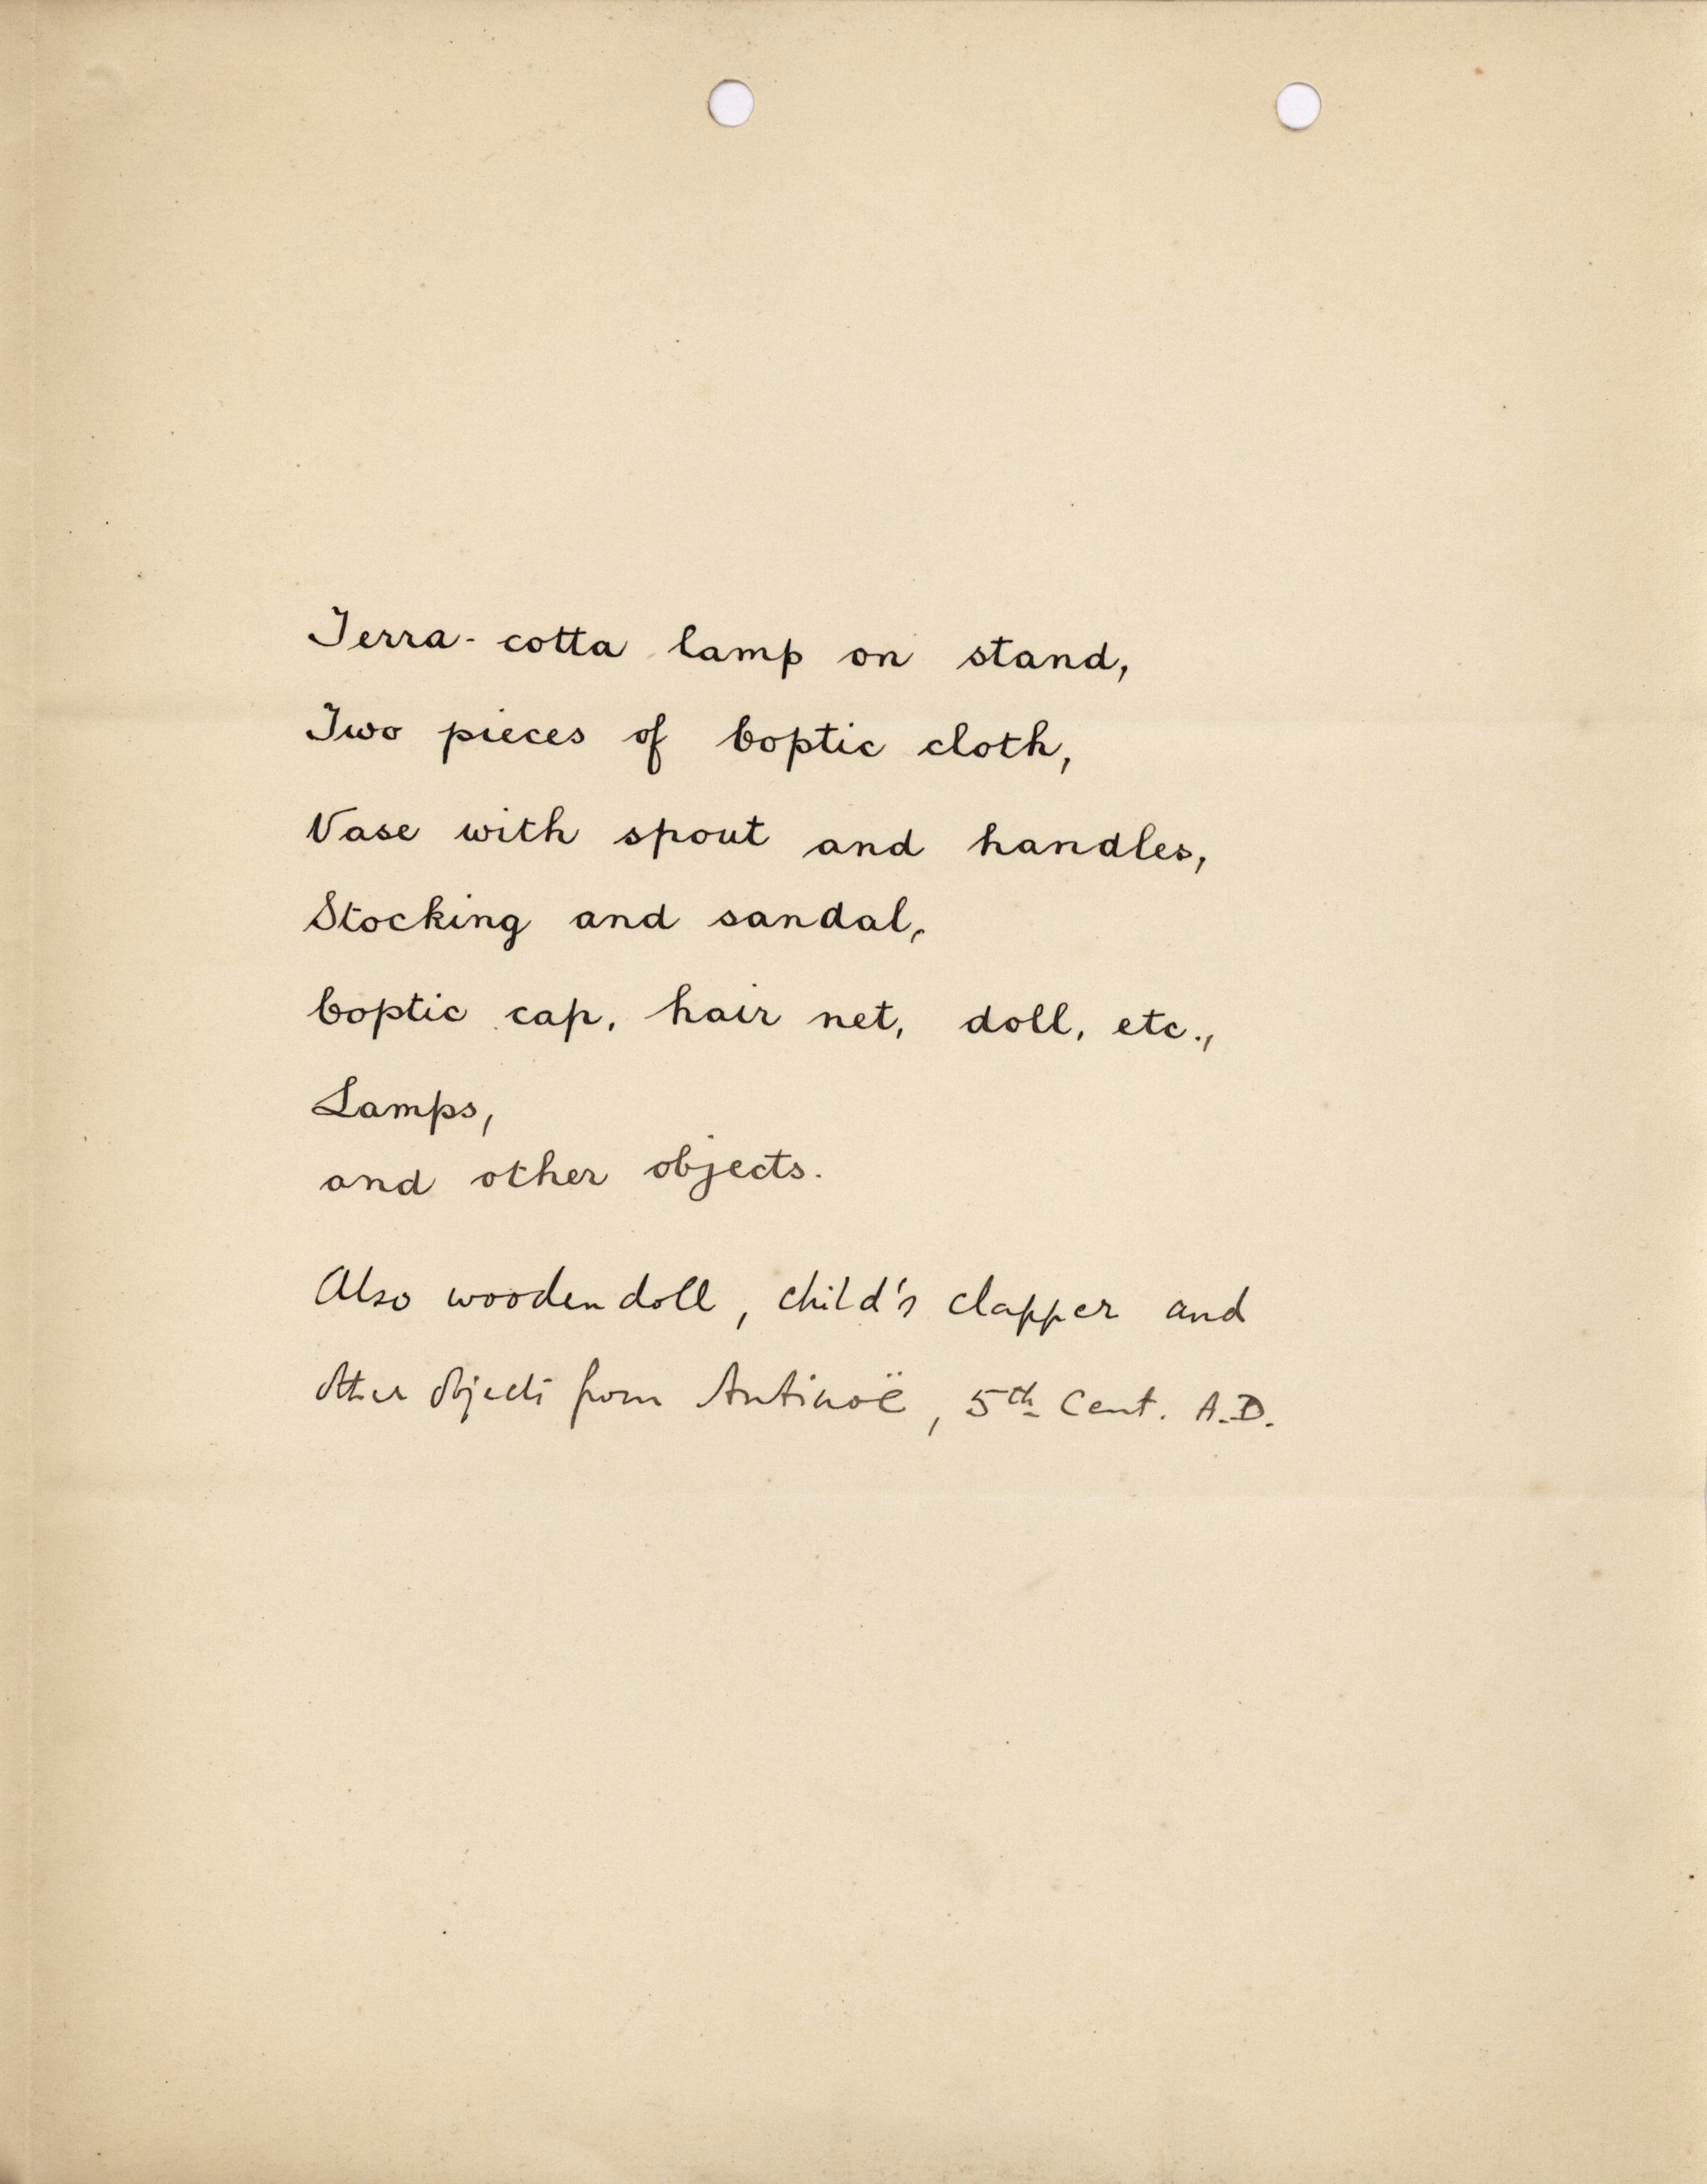 Terra-cotta lamp on stand,
Two pieces of Coptic cloth,
Vase with spout and handles,
Stocking and sandal,
Coptic cap, hair net, doll, etc.,
Lamps,
and other objects.
Also wooden doll, child's clapper and
other objects from Antinoë, 5th Cent. A.D.